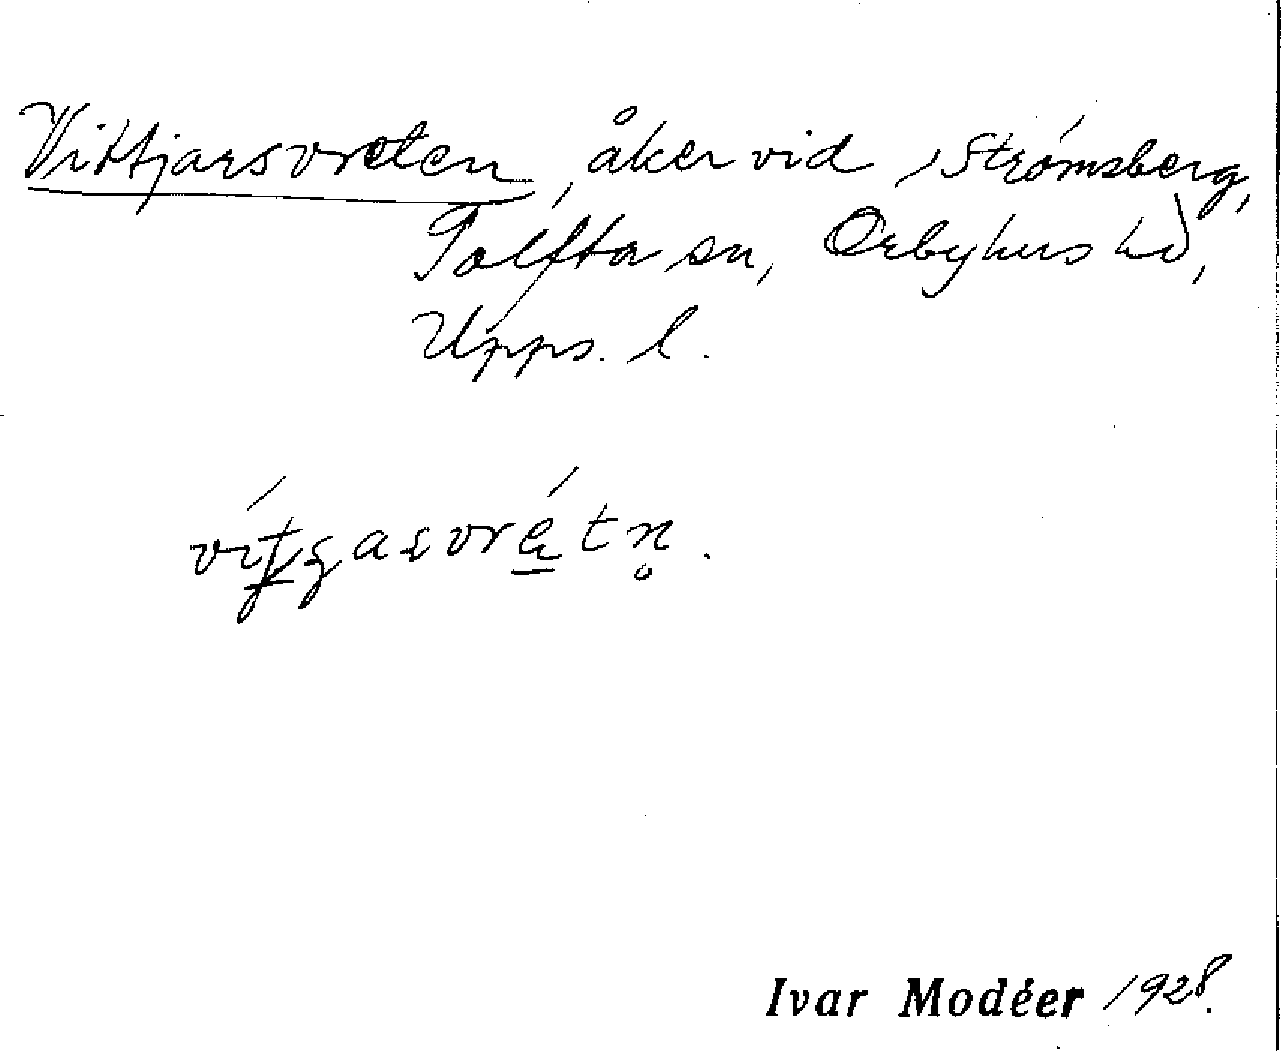 Vittjarsvreten, åker vid Strömsberg,
Tolfta sn, Örbyhus hd,
Upps. l.
Ivar Modéer 1928.